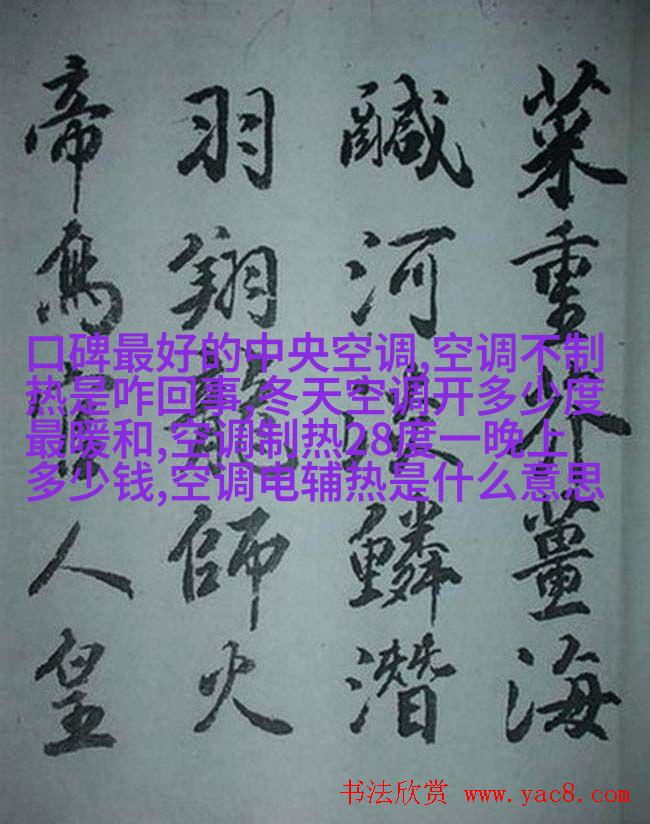 菜重芥薑海
鹹河淡鱗潛
羽翔龍師火
帝鳥官人皇
口碑最好的中央空调,空调不制
热是咋回事,冬天空调开多少度
最暖和,空调制热28度一晚上
多少钱,空调电辅热是什么意思
书法欣赏 www.yac8.com